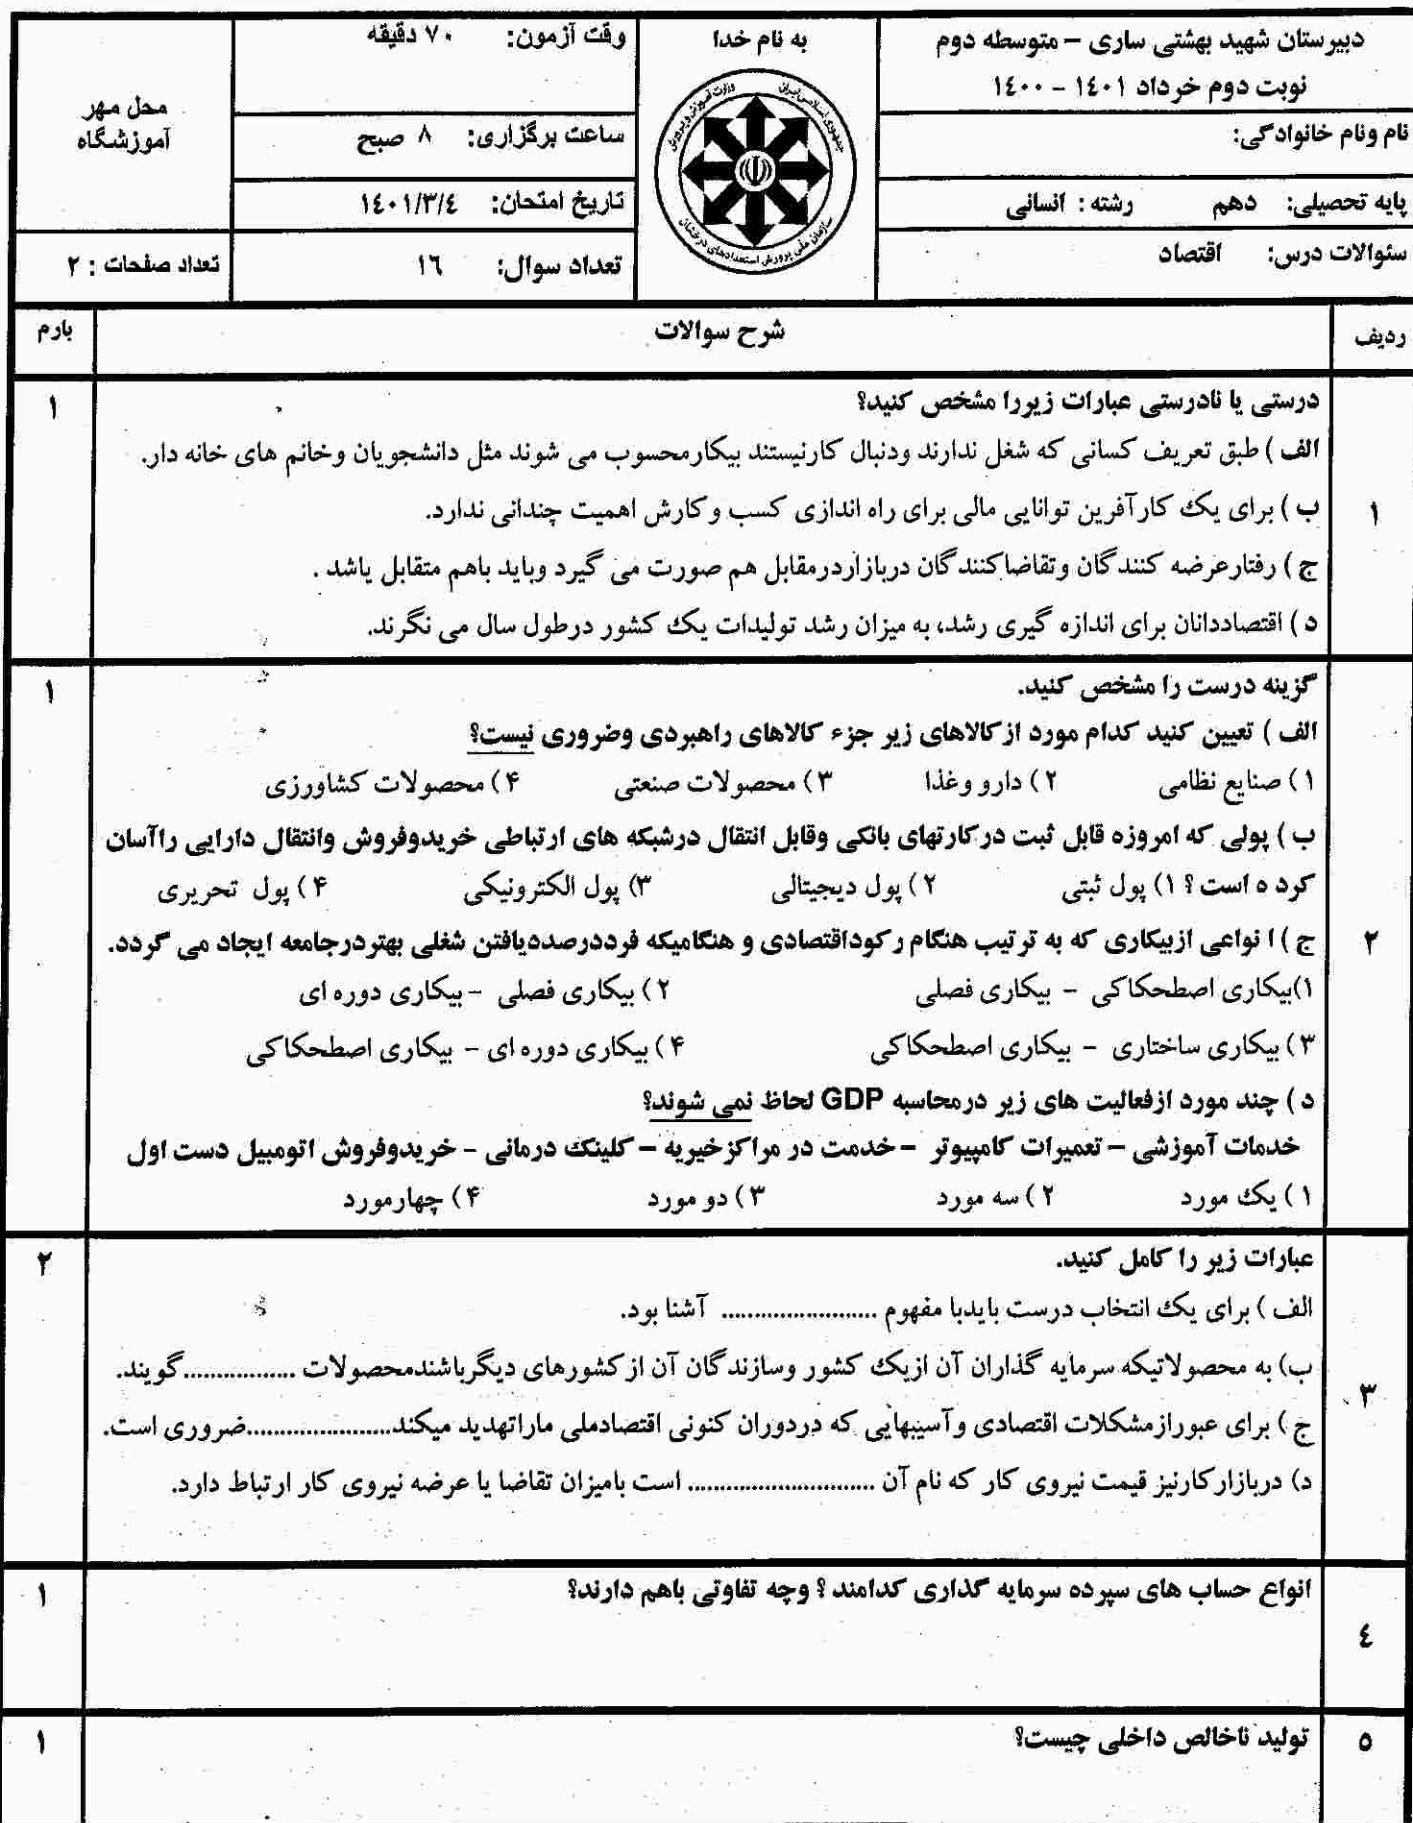 دبیرستان شهید بهشتی ساری – متوسطه دوم
نوبت دوم خرداد ۱٤۰۱ – ۱٤۰۰
نام ونام خانوادگی:
پایه تحصیلی: دهم رشته : انسانی
سئوالات درس: اقتصاد
به نام خدا
جمهوری اسلامی ایران
وزارت آموزش و پرورش
سازمان ملی پرورش استعدادهای درخشان
وقت آزمون: ۷۰ دقیقه
ساعت برگزاری: ۸ صبح
تاریخ امتحان: ۱٤۰۱/۳/٤
تعداد سوال: ۱٦
محل مهر
آموزشگاه
تعداد صفحات : ۲
ردیف شرح سوالات بارم
درستی یا نادرستی عبارات زیررا مشخص کنید؟ ۱
الف ) طبق تعریف کسانی که شغل ندارند ودنبال کارنیستند بیکارمحسوب می شوند مثل دانشجویان وخانم های خانه دار.
۱ ب ) برای یک کارآفرین توانایی مالی برای راه اندازی کسب وکارش اهمیت چندانی ندارد.
ج ) رفتارعرضه کنندگان وتقاضاکنندگان دربازاردرمقابل هم صورت می گیرد وباید باهم متقابل یاشد .
د ) اقتصاددانان برای اندازه گیری رشد، به میزان رشد تولیدات یک کشور درطول سال می نگرند.
گزینه درست را مشخص کنید. ۱
الف ) تعیین کنید کدام مورد ازکالاهای زیر جزء کالاهای راهبردی وضروری نیست؟
۱ ) صنایع نظامی ۲ ) دارو وغذا ۳ ) محصولات صنعتی ۴ ) محصولات کشاورزی
ب ) پولی که امروزه قابل ثبت درکارتهای بانکی وقابل انتقال درشبکه های ارتباطی خریدوفروش وانتقال دارایی راآسان
کرد ه است ؟ ۱) پول ثبتی ۲ ) پول دیجیتالی ۳) پول الکترونیکی ۴ ) پول تحریری
۲ ج ) ا نواعی ازبیکاری که به ترتیب هنگام رکوداقتصادی و هنگامیکه فرددرصددیافتن شغلی بهتردرجامعه ایجاد می گردد.
۱)بیکاری اصطحکاکی – بیکاری فصلی ۲ ) بیکاری فصلی –بیکاری دوره ای
۳ ) بیکاری ساختاری – بیکاری اصطحکاکی ۴ ) بیکاری دوره ای – بیکاری اصطحکاکی
د ) چند مورد ازفعالیت های زیر درمحاسبه GDP لحاظ نمی شوند؟
خدمات آموزشی – تعمیرات کامپیوتر –خدمت در مراکزخیریه – کلینک درمانی – خریدوفروش اتومبیل دست اول
۱ ) یک مورد ۲ ) سه مورد ۳ ) دو مورد ۴ ) چهارمورد
عبارات زیر را کامل کنید. ۲
الف ) برای یک انتخاب درست بایدبا مفهوم ........................ آشنا بود.
ب) به محصولاتیکه سرمایه گذاران آن ازیک کشور وسازندگان آن ازکشورهای دیگرباشندمحصولات .................گویند.
۳ ج ) برای عبورازمشکلات اقتصادی وآسیبهایی که دردوران کنونی اقتصادملی ماراتهدید میکند......................ضروری است.
د) دربازارکارنیز قیمت نیروی کار که نام آن ............................. است بامیزان تقاضا یا عرضه نیروی کار ارتباط دارد.
انواع حساب های سپرده سرمایه گذاری کدامند ؟ وچه تفاوتی باهم دارند؟ ۱
٤
۵ تولید ناخالص داخلی چیست؟ ۱